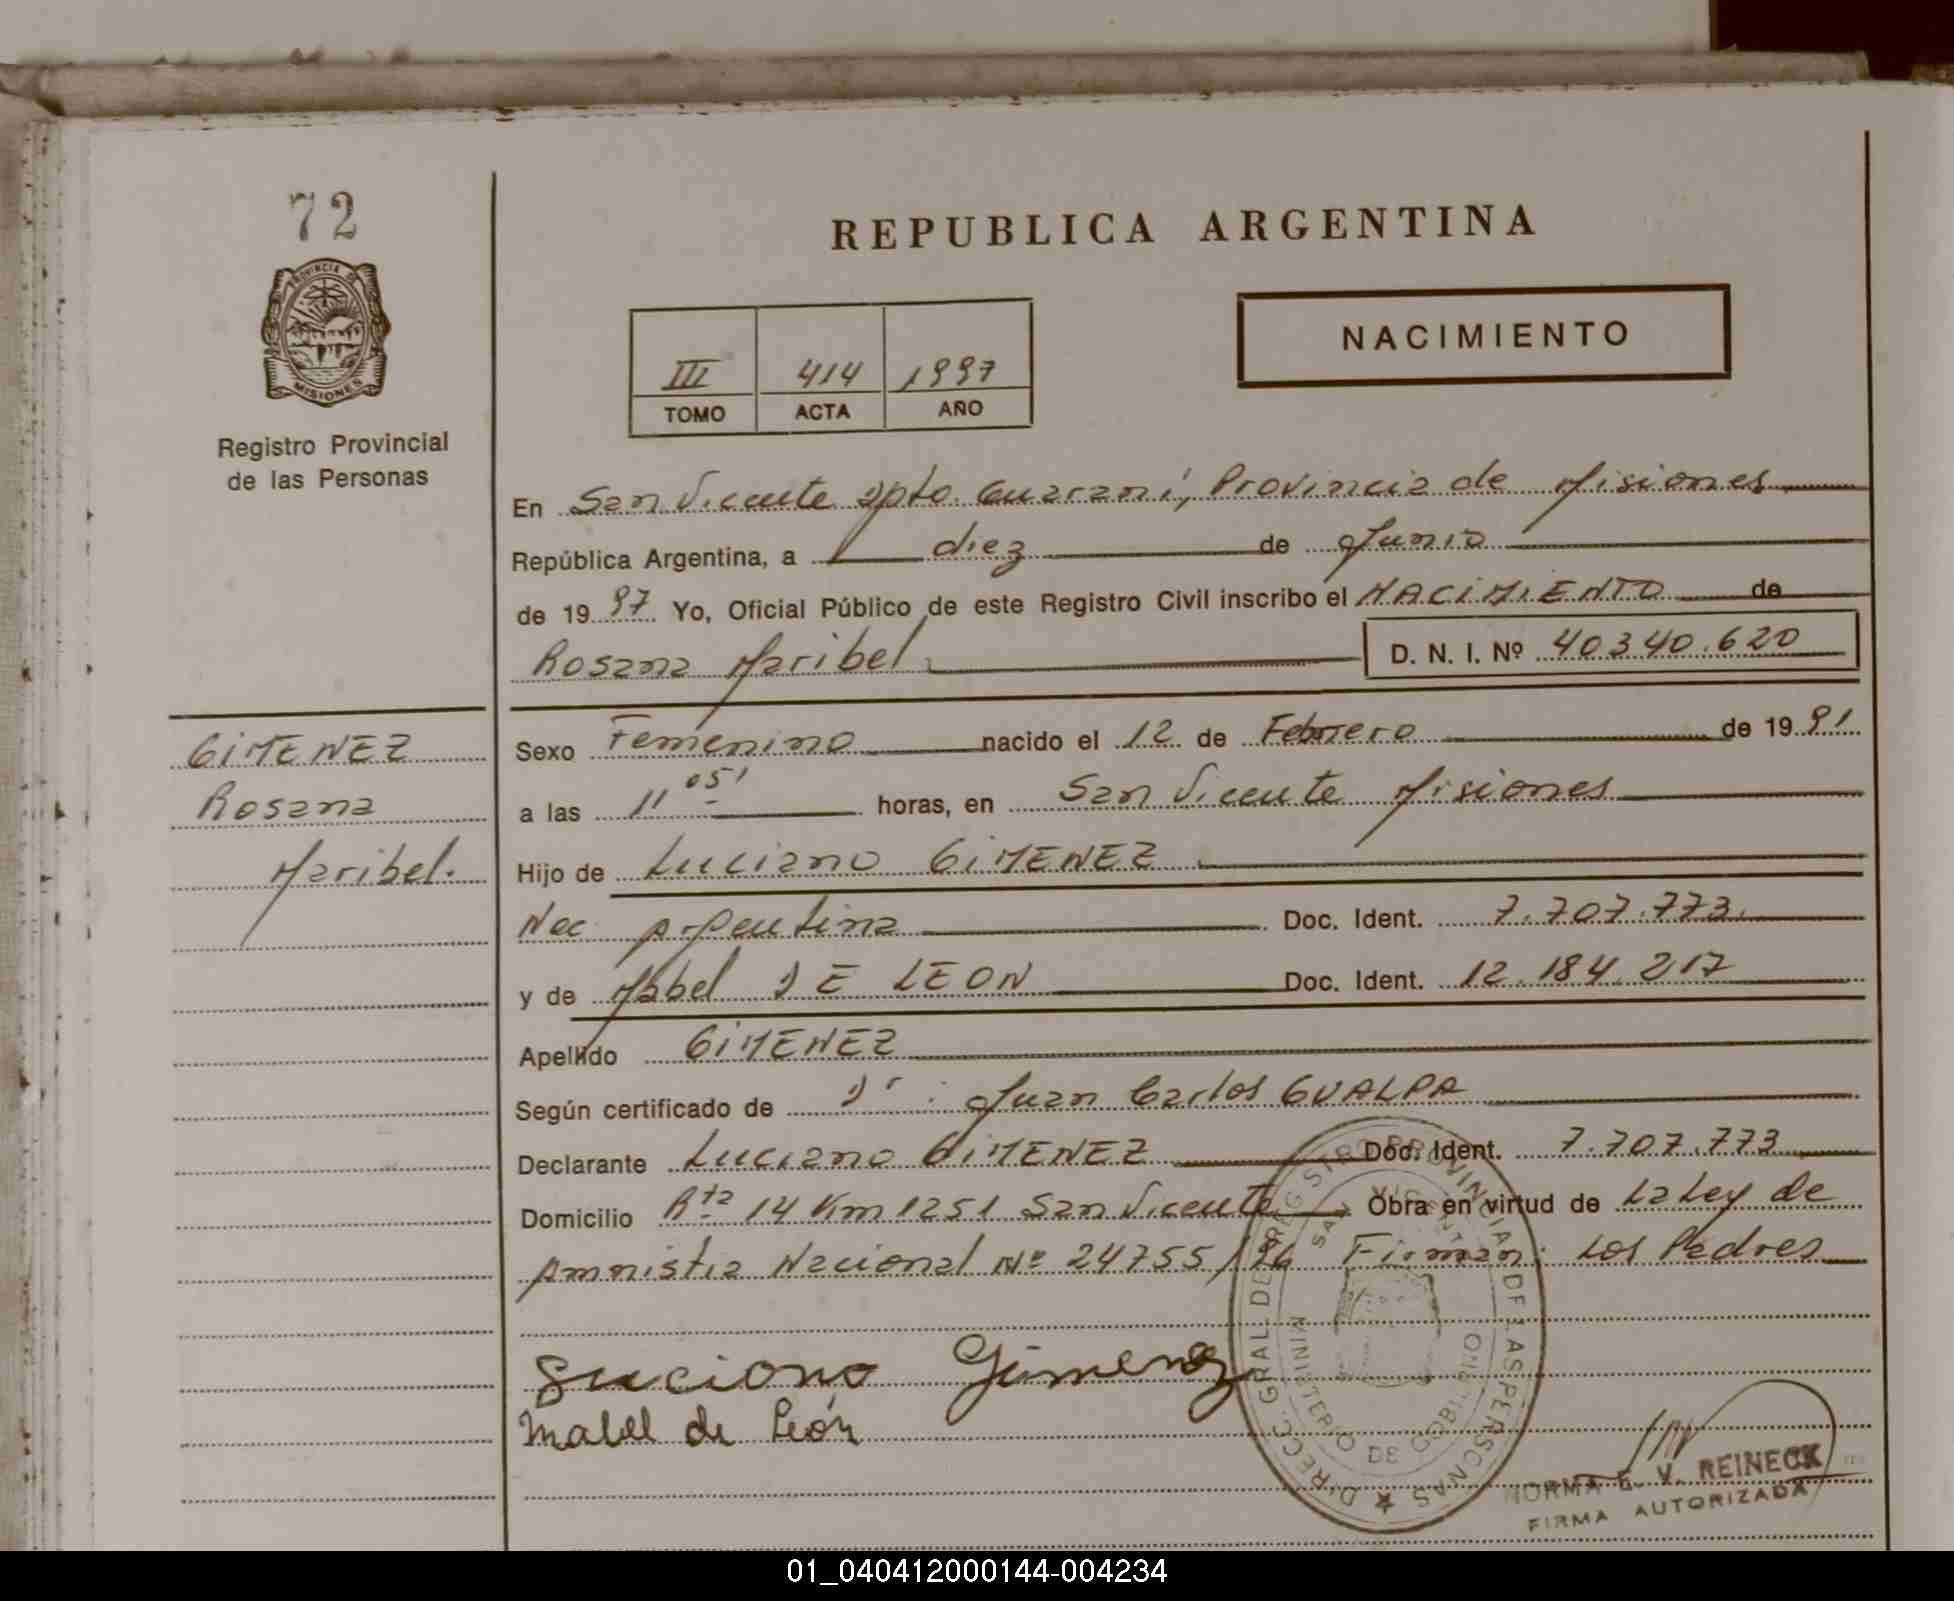 72
REPUBLICA ARGENTINA
PROVINCIA DE
MISIONES
Registro Provincial
de las Personas
III 414 1997
TOMO ACTA AÑO
NACIMIENTO
En San Vicente Dpto. Guaraní, Provincia de Misiones
República Argentina, a diez de Junio
de 1997 Yo, Oficial Público de este Registro Civil inscribo el NACIMIENTO de
Rosana Maribel
D. N. I. Nº 40340.620
GIMENEZ
Rosana
Maribel.
Sexo Femenino nacido el 12 de Febrero de 1991
a las 11 05' horas, en San Vicente Misiones
Hijo de Luciano GIMENEZ
Nac. Argentina Doc. Ident. 7.707.773.
y de Mabel DE LEON Doc. Ident. 12.184.217
Apellido GIMENEZ
Según certificado de Dr. Juan Carlos GUALPA
Declarante Luciano GIMENEZ Doc. Ident. 7.707.773
Domicilio Rta 14 Km 1251 San Vicente Obra en virtud de La Ley de
Amnistia Nacional Nº 24755/96 Firman: Los Padres
Luciano Gimenez
Mabel de León
DIRECC. GRAL. DE REGISTRO PROVINCIAL DE LAS PERSONAS
SAN VICENTE
MINISTERIO DE GOBIERNO
NORMA E. V. REINECK
FIRMA AUTORIZADA
01_040412000144-004234